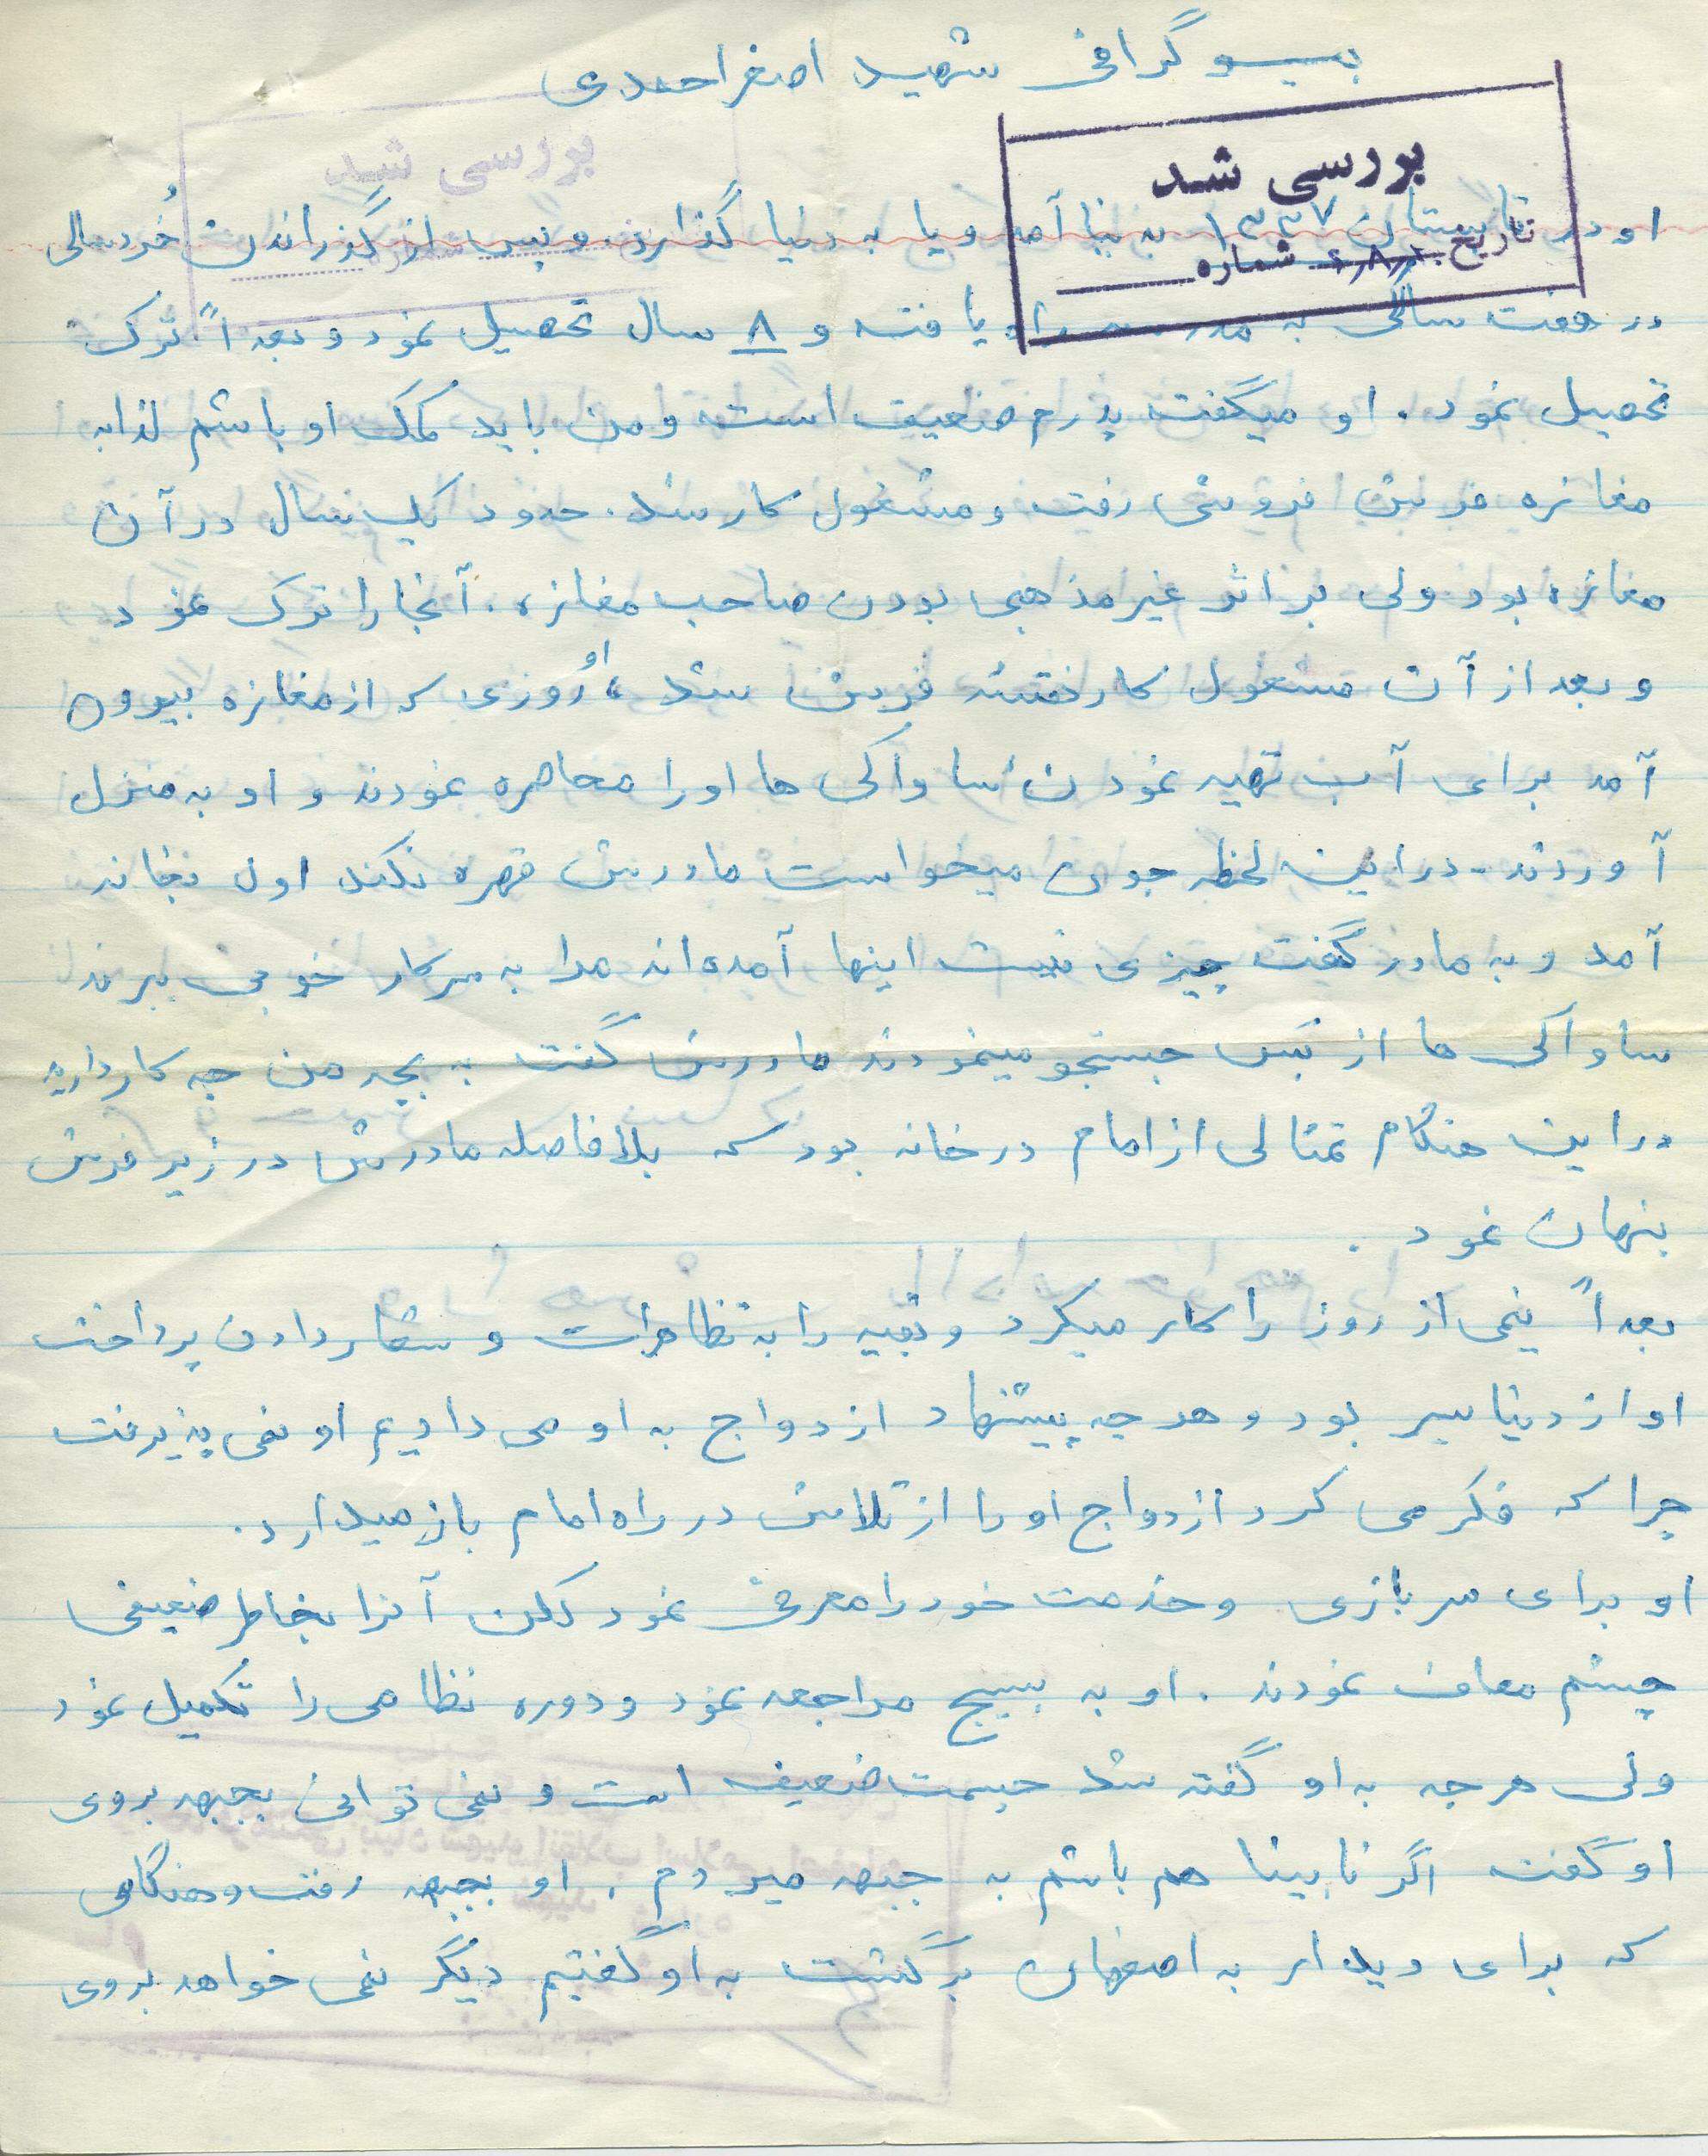 بیوگرافی شهید اصغر احمدی
بررسی شد
تاریخ
شماره
او در تابستان ۱۳۳۷ به دنیا آمد و پا به دنیا گذارد. و پس از گذراندن خُردسالی
در هفت سالگی به مدرسه راه یافته و ۸ سال تحصیل نمود و بعداً ترک
تحصیل نمود. او میگفت پدرم ضعیف است و من باید کمک او باشم لذا به
مغازه فرش فروشی رفت و مشغول کار شد. حدود یک سال در آن
مغازه بود ولی بر اثر غیر مذهبی بودن صاحب مغازه. آنجا را ترک نمود
و بعد از آن مشغول کار نقشه فرش شد، او روزی که از مغازه بیرون
آمد برای آب تهیه نمودن ساواکی ها او را محاصره نمودند و او به منزل
آوردند. در این لحظه چون میخواست مادرش قهره نکند اول بخانه
آمد و به مادر گفت چیزی نیست اینها آمده اند مرا به سر کار خوبی ببرند
ساواکی ها از بس جستجو مینمودند مادرش گفت به بچه من چه کار دارید
در این هنگام تمثالی از امام در خانه بود که بلافاصله مادرش در زیر فرش
پنهان نمود.
بعداً نیمی از روز را کار میکرد و بقیه را به تظاهرات و شعار دادن پرداخت
او از دنیا سیر بود و هر چه پیشنهاد ازدواج به او می دادیم او نمی پذیرفت
چرا که فکر می کرد ازدواج او را از تلاش در راه امام باز میدارد.
او برای سربازی و خدمت خود را معرفی نمود لکن آنرا بخاطر ضعیفی
چشم معاف نمودند. او به بسیج مراجعه نمود و دوره نظامی را تکمیل نمود
ولی هر چه به او گفته شد چشمت ضعیف است و نمی توانی بجبهه بروی
او گفت اگر نابینا هم باشم به جبهه میروم. او بجبهه رفت و هنگامی
که برای دیدار به اصفهان برگشت به او گفتیم دیگر نمی خواهد بروی